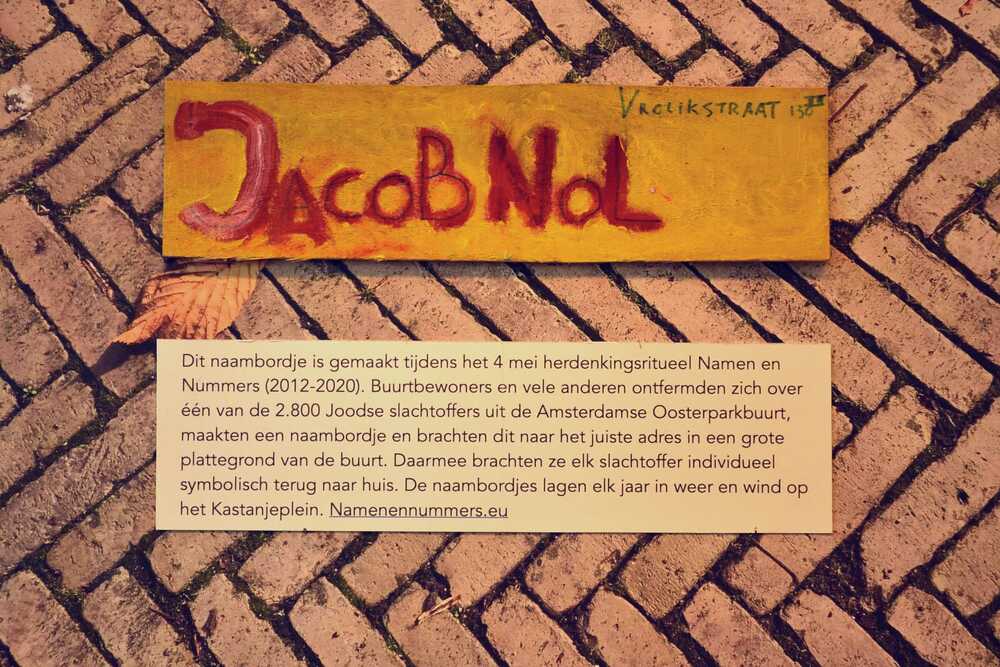 Vrolikstraat 130 II
Jacob Nol
Dit naambordje is gemaakt tijdens het 4 mei herdenkingsritueel Namen en
Nummers (2012-2020). Buurtbewoners en vele anderen ontfermden zich over
één van de 2.800 Joodse slachtoffers uit de Amsterdamse Oosterparkbuurt,
maakten een naambordje en brachten dit naar het juiste adres in een grote
plattegrond van de buurt. Daarmee brachten ze elk slachtoffer individueel
symbolisch terug naar huis. De naambordjes lagen elk jaar in weer en wind op
het Kastanjeplein. Namenennummers.eu